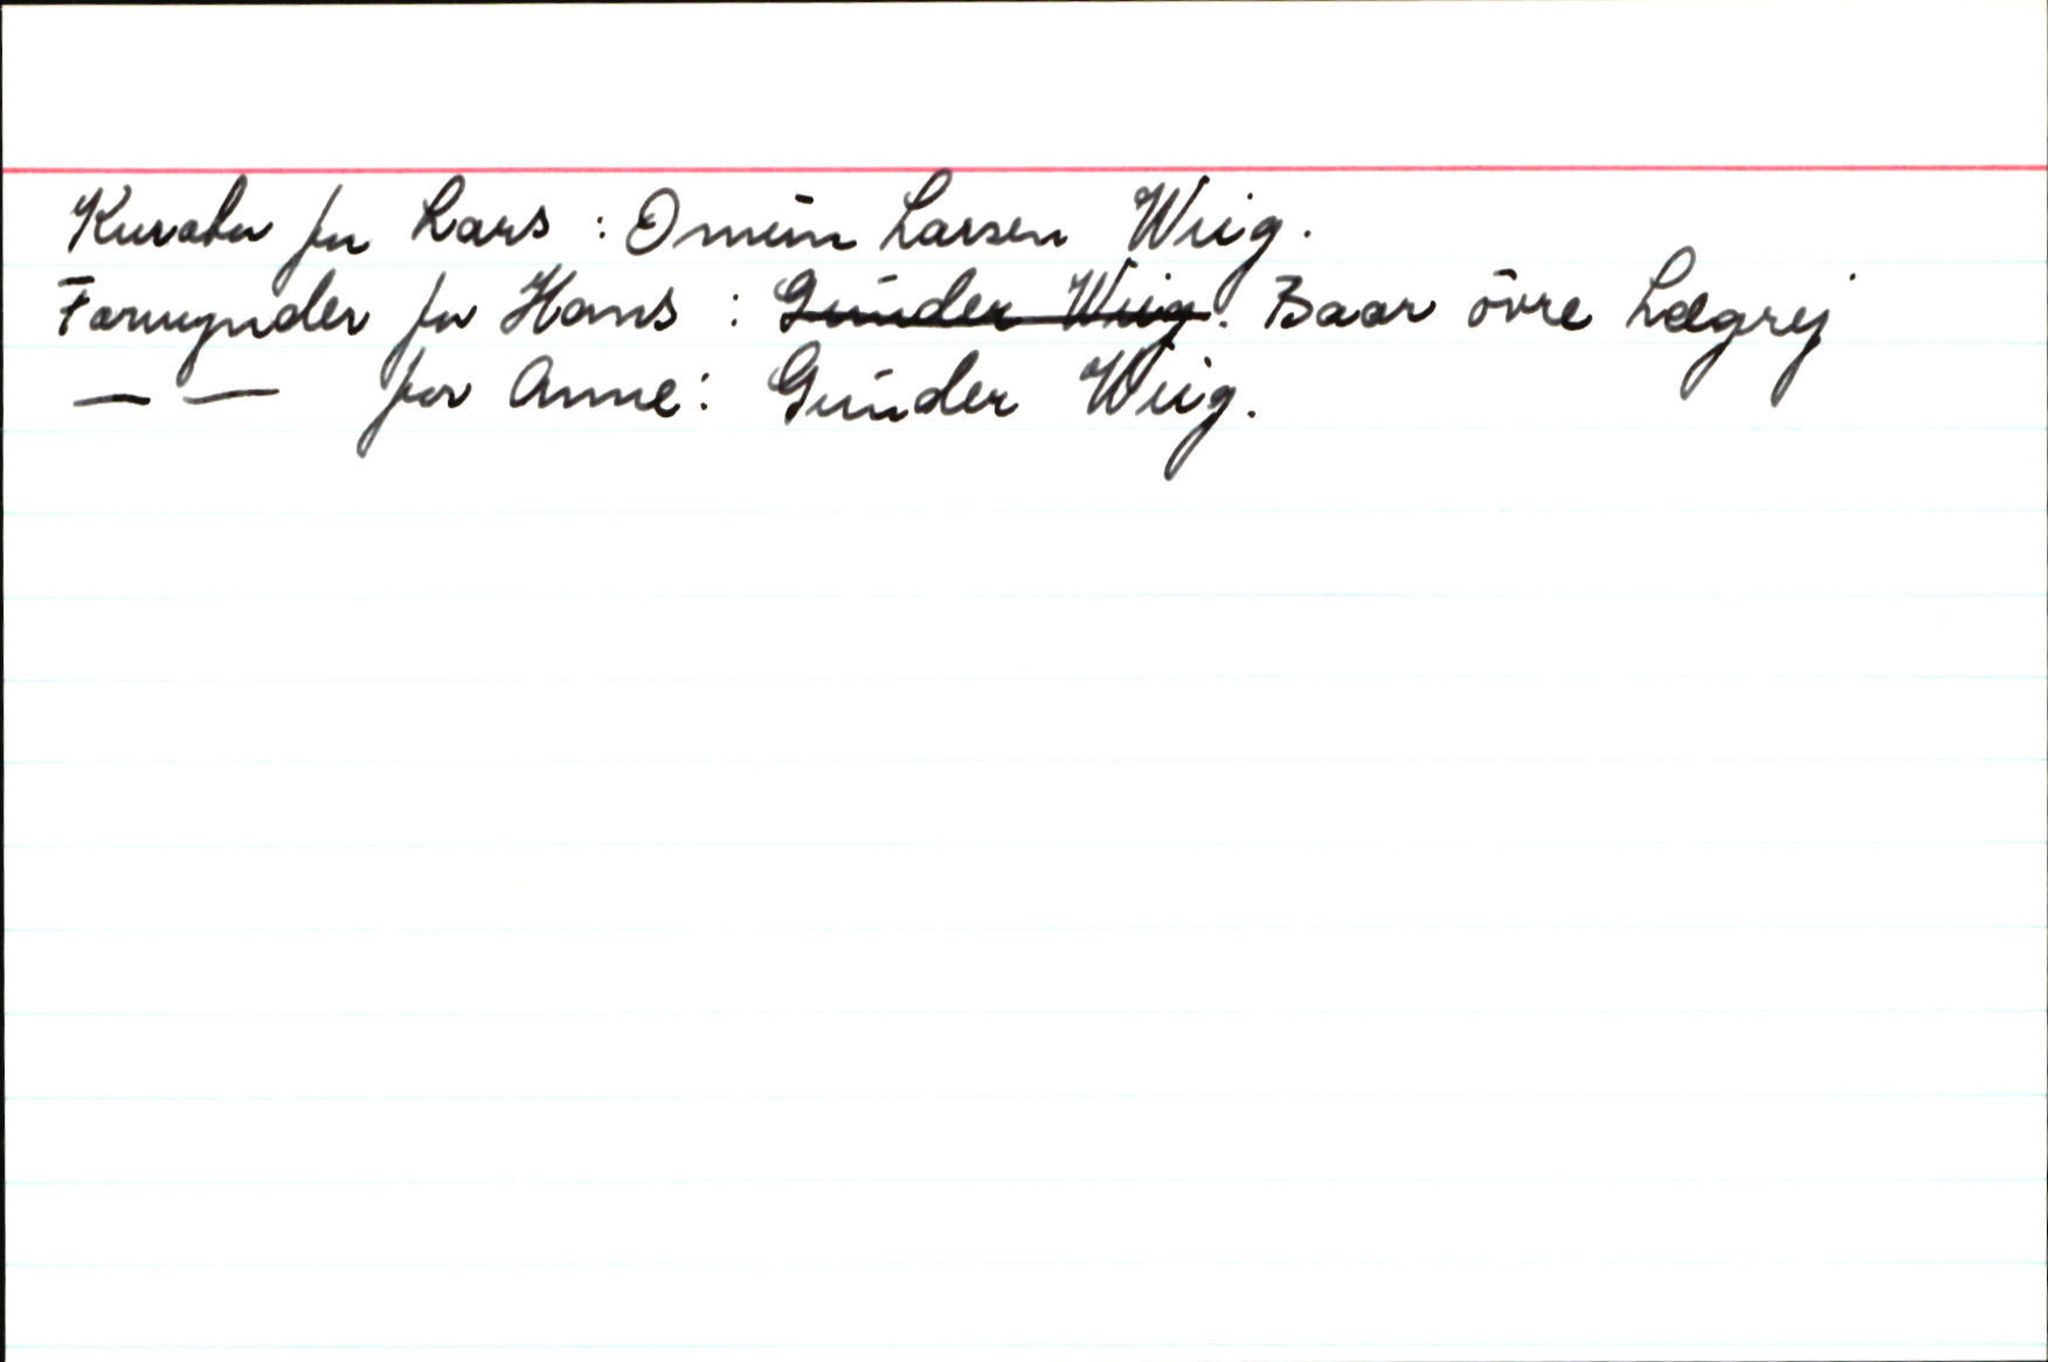 Kurator for Lars : Omün Larsen Wiig.
Formynder for Hans : ~~Günder Wiig~~. Baar övre Lægrej
— — for Anne : Günder Wiig.